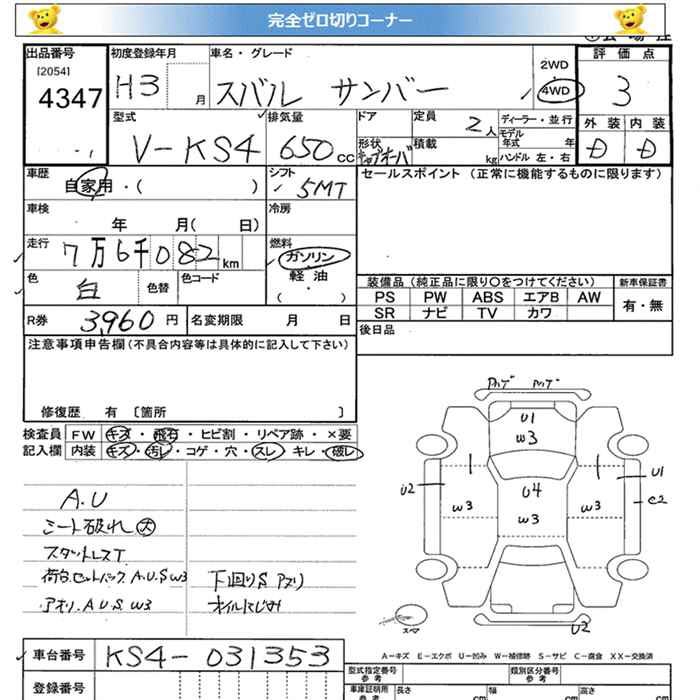 完全ゼロ切りコーナー
出品番号
[2054]
4347
初度登録年月
H3 月
車名・グレード
スバル サンバー
2WD
4WD
評価点
3
型式
V-KS4
排気量
650 cc
ドア
形状
キャブオーバ
定員
2人
積載
kg
ディーラー・並行
モデル年式 年
ハンドル 左・右
外装 内装
D D
車歴
自家用・( )
シフト
5MT
セールスポイント (正常に機能するものに限ります)
車検
年 月( 日)
冷房
走行
7万6千082km
燃料
ガソリン
軽油
( ・ )
色
白
色替
色コード
装備品 (純正品に限り〇をつけてください)
新車保証書
PS PW ABS エアB AW
SR ナビ TV カワ
有・無
R券 3,960 円
名変期限 月 日
後日品
注意事項申告欄(不具合内容等は具体的に記入して下さい)
修復歴 有 〔箇所 〕
検査員 FW キズ・飛石・ヒビ割・リペア跡・×要
記入欄 内装 キズ・汚レ・コゲ・穴・スレ・キレ・破レ
A.U
シート破れ 大
スタットレスT
荷台.セットバック A.U.S W3
アオリ.A.U.S W3
下廻りS アオリ
オイルにじみ
U1
W3
U2
W3
U4
W3
W3
U1
C2
U2
スペア
A-キズ E-エクボ U-凹み W-補修跡 S-サビ C-腐食 XX-交換済
車台番号 KS4-031353
登録番号
型式指定番号
参考
類別区分番号
参考
車庫証明用
参考
長さ cm
幅 cm
高さ cm